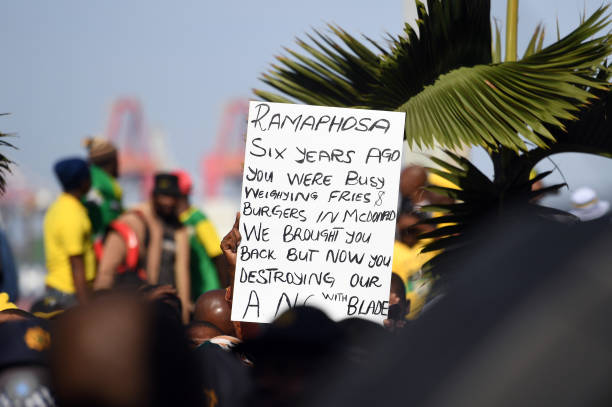 RAMAPHOSA
SIX YEARS AGO
YOU WERE BUSY
WEIGHYING FRIES &
BURGERS IN McDONALD
WE BROUGHT YOU
BACK BUT NOW YOU
DESTROYING OUR
A NC WITH BLADE